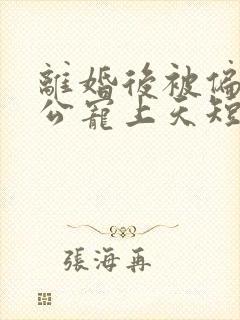 離婚後被偏
公寵上天短
張海再